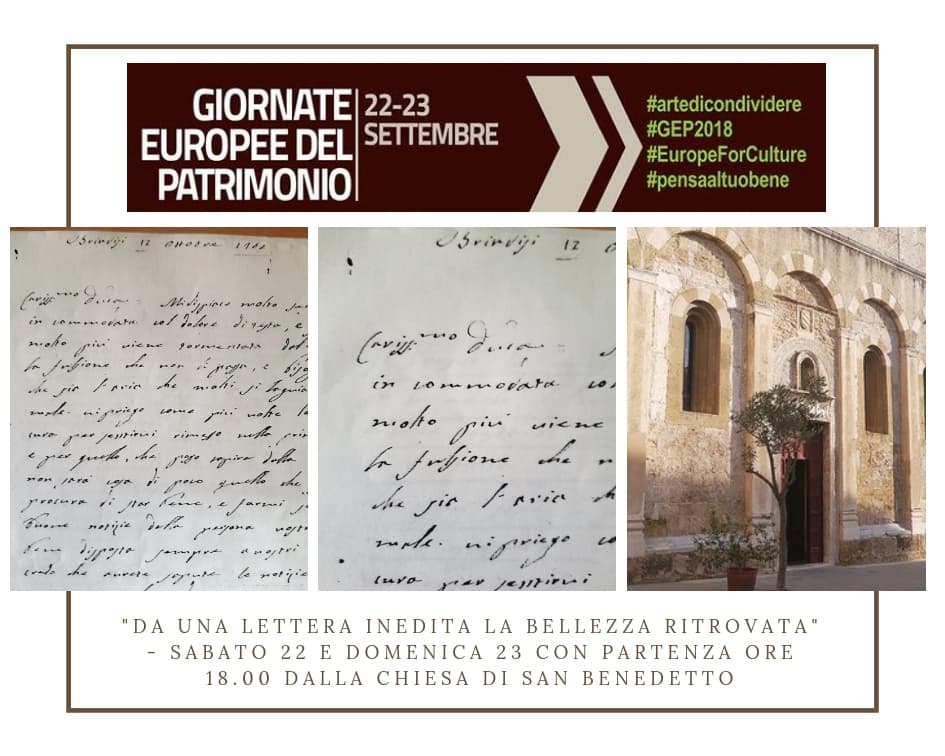 GIORNATE
EUROPEE DEL
PATRIMONIO
22-23
SETTEMBRE
#artedicondividere
#GEP2018
#EuropeForCulture
#pensaaltuobene
Brindisj 12 ottobre
Cariss.mo Duca - Mi dispiace molto
in commodata col dolore di testa, e
molto più viene tormentata dal
la flussione che non si
che sia l'aria che molti si
male. vi priego come più volte
cura per sentirvi nella
e per quello, che dalla
non sarà cosa di poco quello che
procura di star bene, e farmi
buone notizie della persona
bene disposta sempre a vostri
credo che avrete sapute le notizie
Brindisj 12
Cariss.mo Duca
in commodata
molto più viene
la flussione che
che sia l'aria
male. vi priego
cura per sentirvi
"DA UNA LETTERA INEDITA LA BELLEZZA RITROVATA"
- SABATO 22 E DOMENICA 23 CON PARTENZA ORE
18.00 DALLA CHIESA DI SAN BENEDETTO